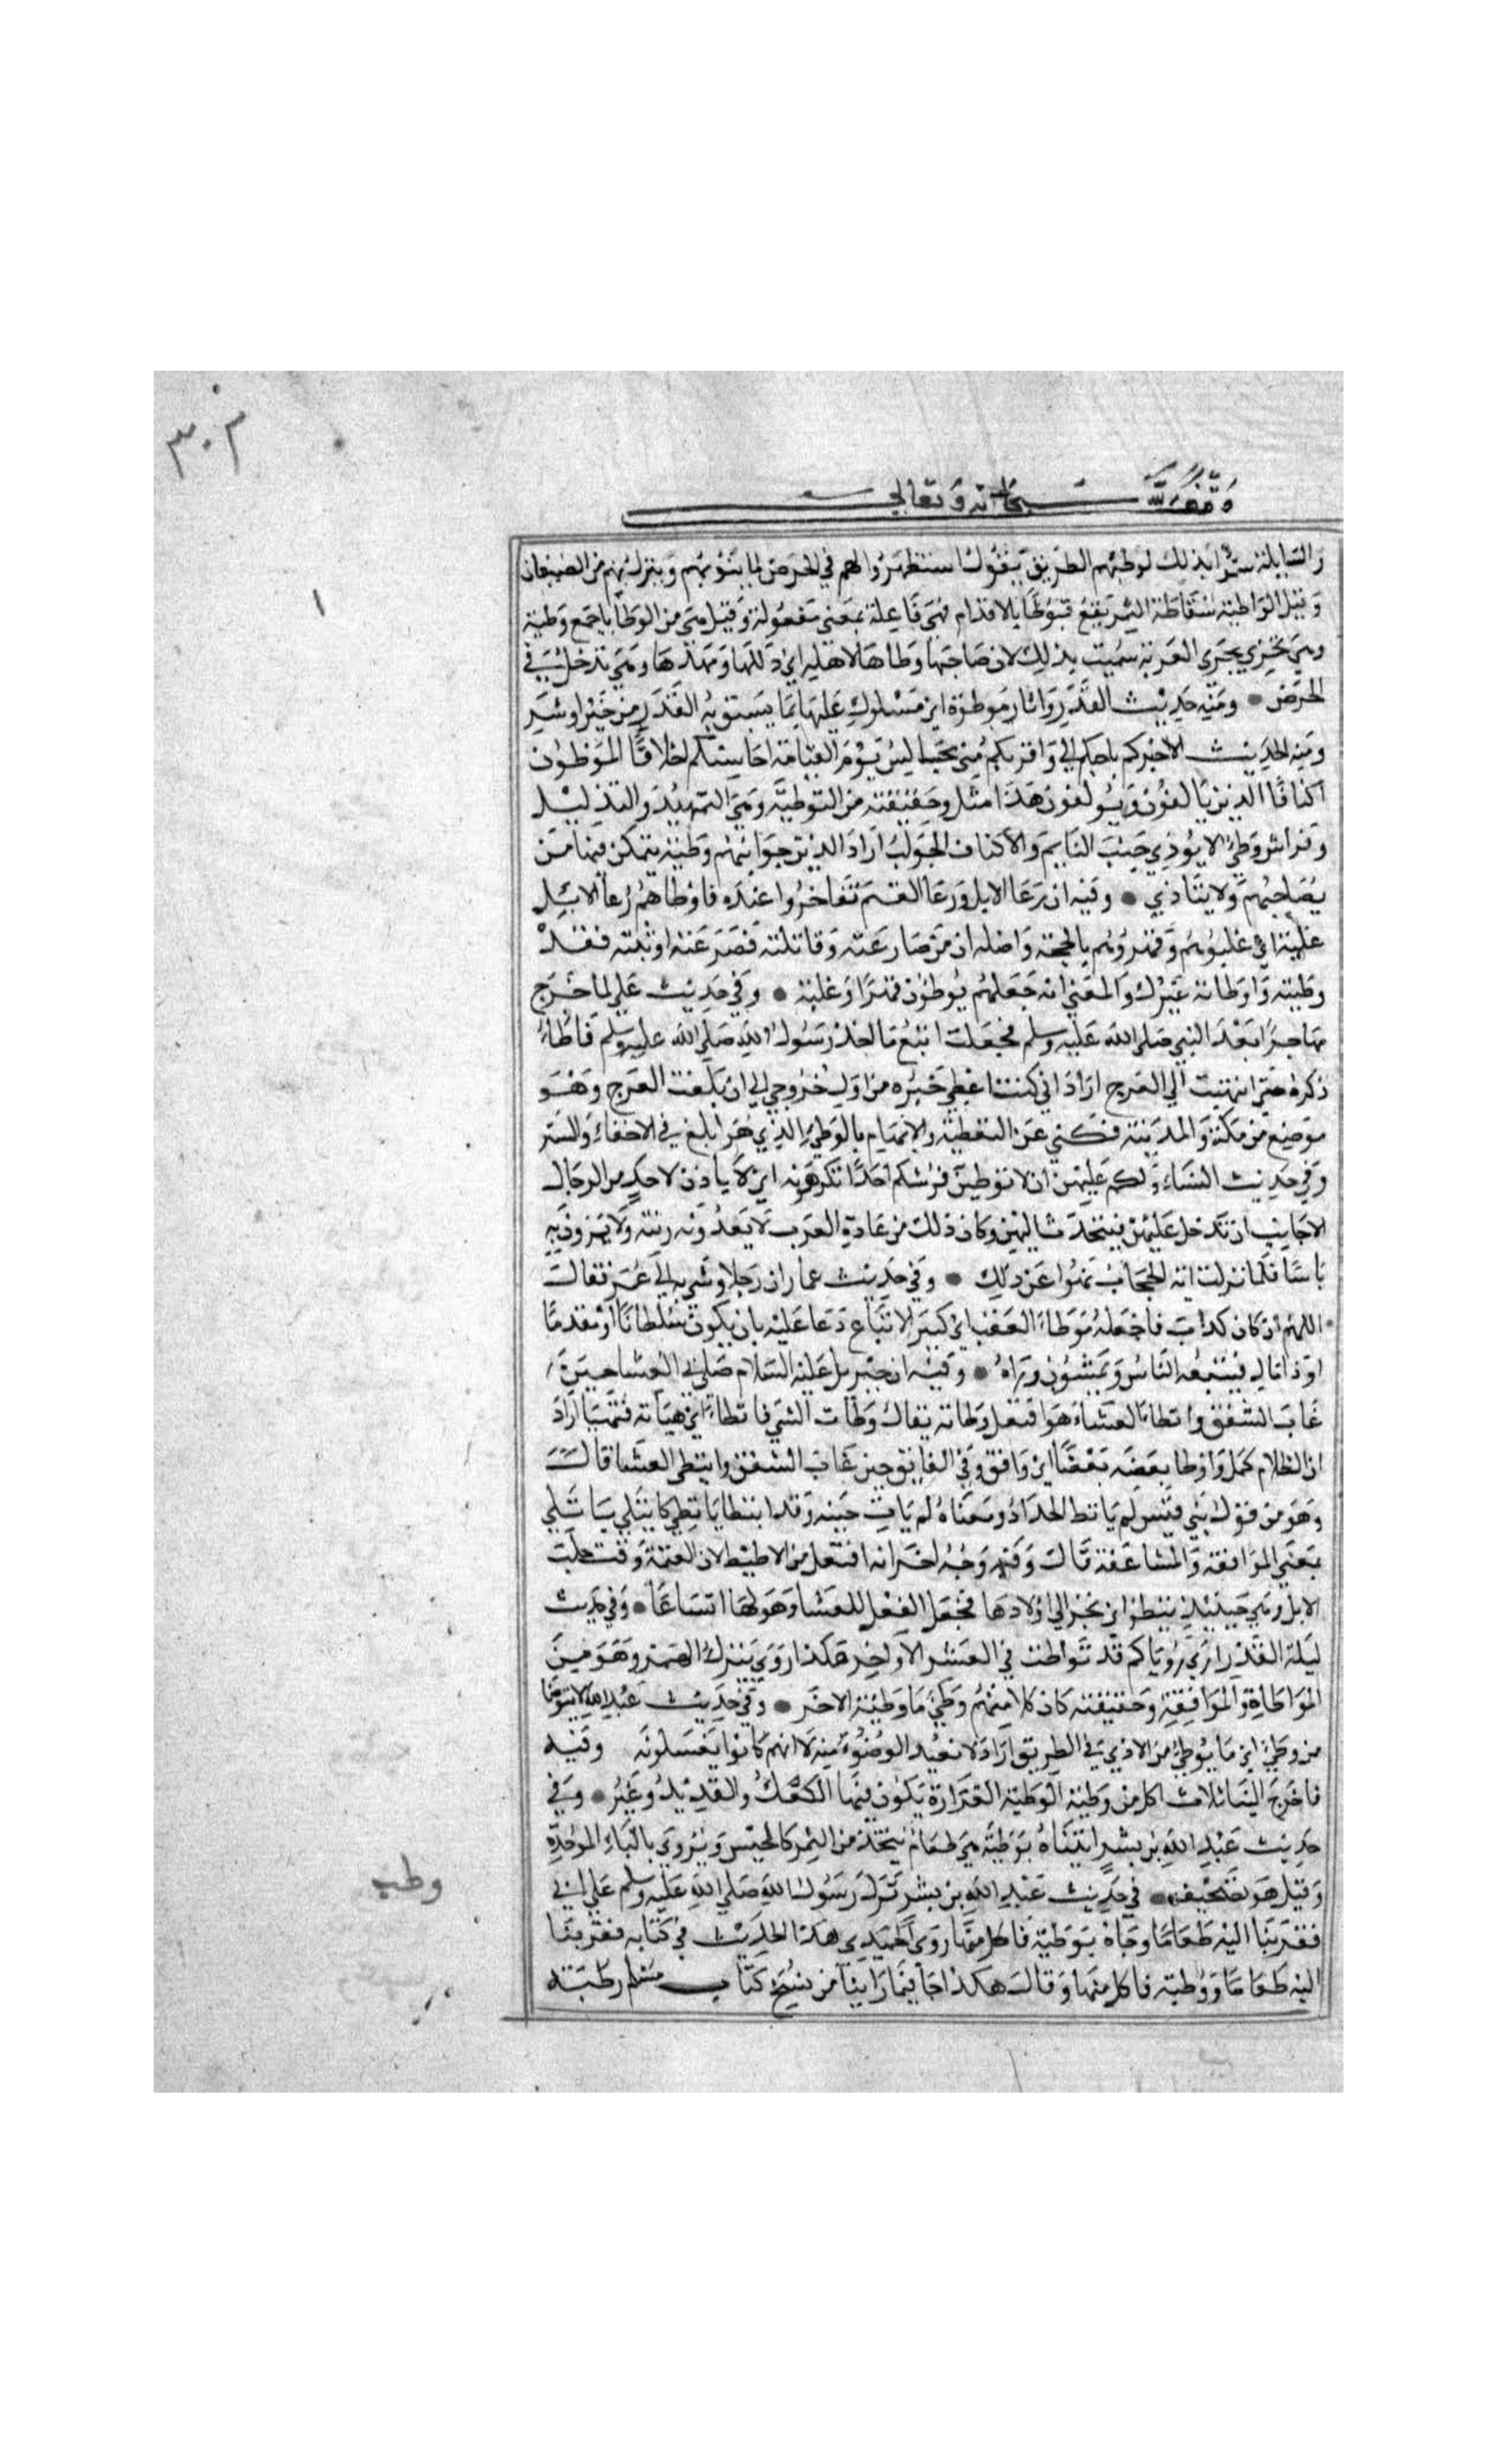 ٣٠٢
وقف لله سبحانه وتعالى
والسابلة سموا بذلك لوطئهم الطريق يقول استظهروا لهم في الخرص لما ينوبهم وينزل بهم من الضيفان
وقيل الواطية سقاطة التمر يقع فتوطا بالاقدام فهي فاعلة بمعنى مفعولة وقيل هي من الوطايا جمع وطية
وهي تجري مجرى العرية سميت بذلك لان صاحبها وطاها لاهله اي ذللها ومهدها وهي تدخل في
الخرص ومنه حديث القدر واثار موطوة اي مسلوك عليها بما سبق به القدر من خير او شر
ومنه الحديث الا اخبركم باحبكم الي واقربكم مني مجالس يوم القيامة احاسنكم اخلاقا الموطون
اكنافا الذين يالفون ويولفون هذا مثل وحقيقته من التوطية وهي التمهيد والتذليل
وفراش وطي لا يوذي جنب النايم والاكناف الجوانب اراد الذين جوانبهم وطية يتمكن فيها من
يصاحبهم ولا يتاذى وفيه ان رعا الابل ورعا الغنم تفاخروا عنده فاوطاهم رعا الابل
غلبة اي غلبوهم وقهروهم بالحجة واصله ان من صارعته وقاتلته فصرعته او ثبته فقد
وطيته واوطاته غيرك والمعنى انه جعلهم يوطون قهرا وغلبة وفي حديث علي لما خرج
مهاجرا بعد النبي صلى الله عليه وسلم فجعلت اتبع ماخذ رسول الله صلى الله عليه وسلم فاطا
ذكره حتى انتهيت الي العرج اراد اني كنت اغطي خبره من اول خروجي الي ان بلغت العرج وهو
موضع من مكة والمدينة فكني عن التغطية والايهام بالوطي الذي هو ابلغ في الاخفاء والستر
وفي حديث النساء ولكم عليهن ان لا يوطين فرشكم احدا تكرهونه اي لا ياذن لاحد من الرجال
الاجانب ان تدخل عليهن فيتحدث اليهن وكان ذلك من عادة العرب لا يعدونه ريبة ولا يرون به
باسا فلما نزلت اية الحجاب نهوا عن ذلك وفي حديث عمار ان رجلا وشى به الي عمر فقال
اللهم ان كان كذب فاجعله موطا العقب اي كثير الاتباع دعا عليه بان يكون سلطانا او مقدما
او ذا مال فيتبعه الناس ويمشون وراه وفيه ان جبريل عليه السلام صلى في العشا حين
غاب الشفق واتطا العشاء هو افتعل وطاته يقال وطات الشي فاتطا اي هياته فتهيا اراد
ان الظلام كمل واوطا بعضه بعضا اي وافق وفي الفايق حين غاب الشفق وايتطى العشا قال
وهو من قول بني قيس لم ياتط الجداد ومعناه لم يات حينه وقد ايتطا ياتطي كايتلي ياتلي
بمعنى الموافقة والمساعفة قال وفيه وجه اخر انه افتعل من الاطيط لان العتمة وقت حلب
الابل وهي حينيذ تيط اي تحن الي اولادها فجعل الفعل للعشا وهو لها اتساعا وفي حديث
ليلة القدر ارى رؤياكم قد تواطت في العشر الاواخر هكذا روي بترك الهمز وهو من
المواطاة والموافقة وحقيقته كان كلا منهم وطي ما وطيه الاخر وفي حديث عبد الله لا يتوضا
من وطي اي ما يوطي من الاذي في الطريق اراد لا نعيد الوضوء منه لا انهم كانوا لا يغسلونه وفيه
فاخرج الينا ثلاث اكل من وطية الوطية الغرارة يكون فيها الكعك والقديد وغيره وفي
حديث عبد الله بن بشر اتيناه بوطية هي طعام يتخذ من التمر كالحيس ويروى بالباء الموحدة
وقيل هو تصحيف في حديث عبد الله بن بشر نزل رسول الله صلى الله عليه وسلم على ابي
وطب
فقربنا اليه طعاما وجاه بوطبة فاكل منها روى الحميدي هذا الحديث في كتابه فقربنا
اليه طعاما ووطبة فاكل منها وقال هكذا جا فيما راينا من نسخ كتاب مسلم رطبة